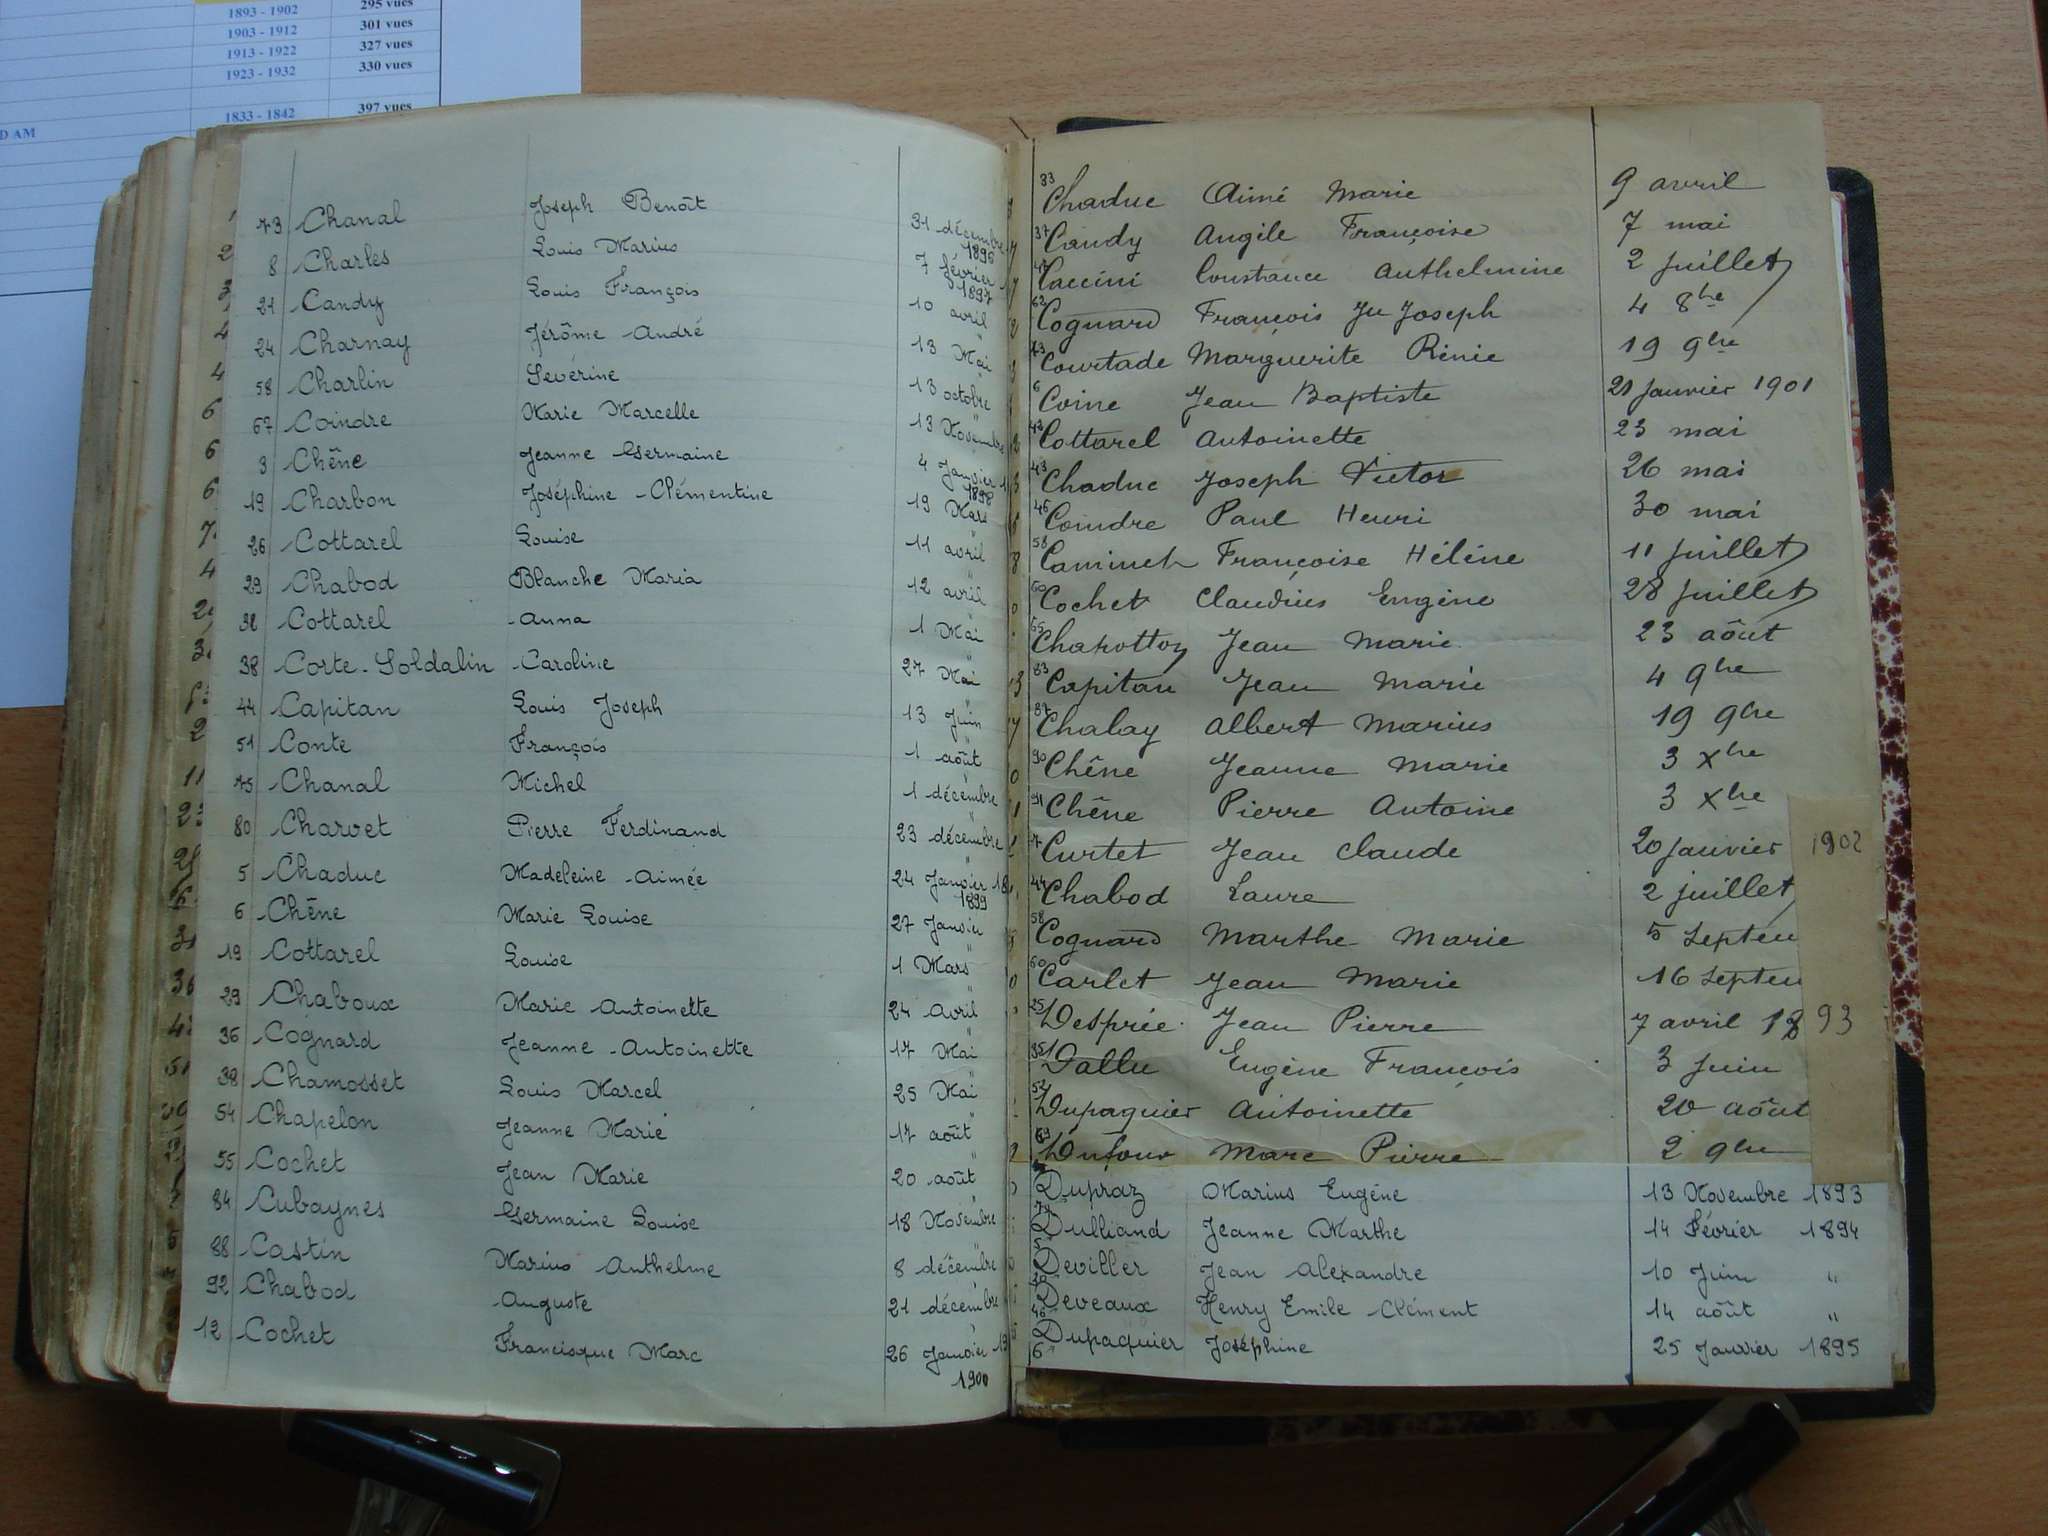 1893 - 1902 295 vues
1903 - 1912 301 vues
1913 - 1922 327 vues
1923 - 1932 330 vues
1833 - 1842 397 vues
D AM
73 Chanal Joseph Benoît 31 décembre 1896
8 Charles Louis Marius 7 février 1897
21 Candy Louis François 10 avril "
24 Charnay Jérôme André 13 Mai "
58 Charlin Sévérine 13 octobre "
67 Coindre Marie Marcelle 13 Novembre "
3 Chêne Jeanne Germaine 4 Janvier 1898
19 Charbon Joséphine Clémentine 19 Mars "
26 Cottarel Louise 11 avril "
29 Chabod Blanche Maria 12 avril "
32 Cottarel Anna 1 Mai "
38 Corte-Soldalin Caroline 27 Mai "
44 Capitan Louis Joseph 13 Juin "
51 Conte François 1 août "
75 Chanal Michel 1 décembre "
80 Charvet Pierre Ferdinand 23 décembre "
5 Chaduc Madeleine Aimée 24 Janvier 1899
6 Chêne Marie Louise 27 Janvier "
19 Cottarel Louise 1 Mars "
29 Chaboux Marie Antoinette 24 Avril "
36 Cognard Jeanne Antoinette 17 Mai "
38 Chamosset Louis Marcel 25 Mai "
54 Chapelon Jeanne Marie 17 août "
55 Cochet Jean Marie 20 août "
84 Cubaynes Germaine Louise 18 Novembre "
88 Castin Marius Anthelme 8 décembre "
92 Chabod Auguste 21 décembre "
12 Cochet Francisque Marc 26 Janvier 1900
83 Chaduc Aimé Marie 9 avril
37 Candy Angèle Françoise 7 mai
Caccini Constance Anthelmine 2 juillet
62 Cognard François Joseph 4 8bre
73 Courtade Marguerite Rénée 19 9bre
6 Coine Jean Baptiste 21 janvier 1901
Cottarel Antoinette 23 mai
43 Chaduc Joseph Victor 26 mai
46 Coindre Paul Henri 30 mai
58 Caminet Françoise Hélène 11 juillet
60 Cochet Claudius Eugène 28 juillet
65 Chapotton Jean Marie 23 aôut
83 Capitan Jean Marie 4 9bre
87 Chabay Albert Marius 19 9bre
90 Chêne Jeanne Marie 3 Xbre
91 Chêne Pierre Antoine 3 Xbre
7 Curtet Jean Claude 20 janvier 1902
44 Chabod Laure 2 juillet
58 Cognard Marthe Marie 5 Septem
60 Carlet Jean Marie 16 Septem
25 Desprée Jean Pierre 7 avril 1893
35 Dallu Eugène François 3 Juin
52 Dupaquier Antoinette 20 aôut
69 Dufour Marc Pierre 2 9bre
Dupraz Marius Eugène 13 Novembre 1893
Dulliand Jeanne Marthe 14 Février 1894
Deviller Jean Alexandre 10 Juin "
Deveaux Henry Emile Clément 14 août "
Dupaquier Joséphine 25 Janvier 1895